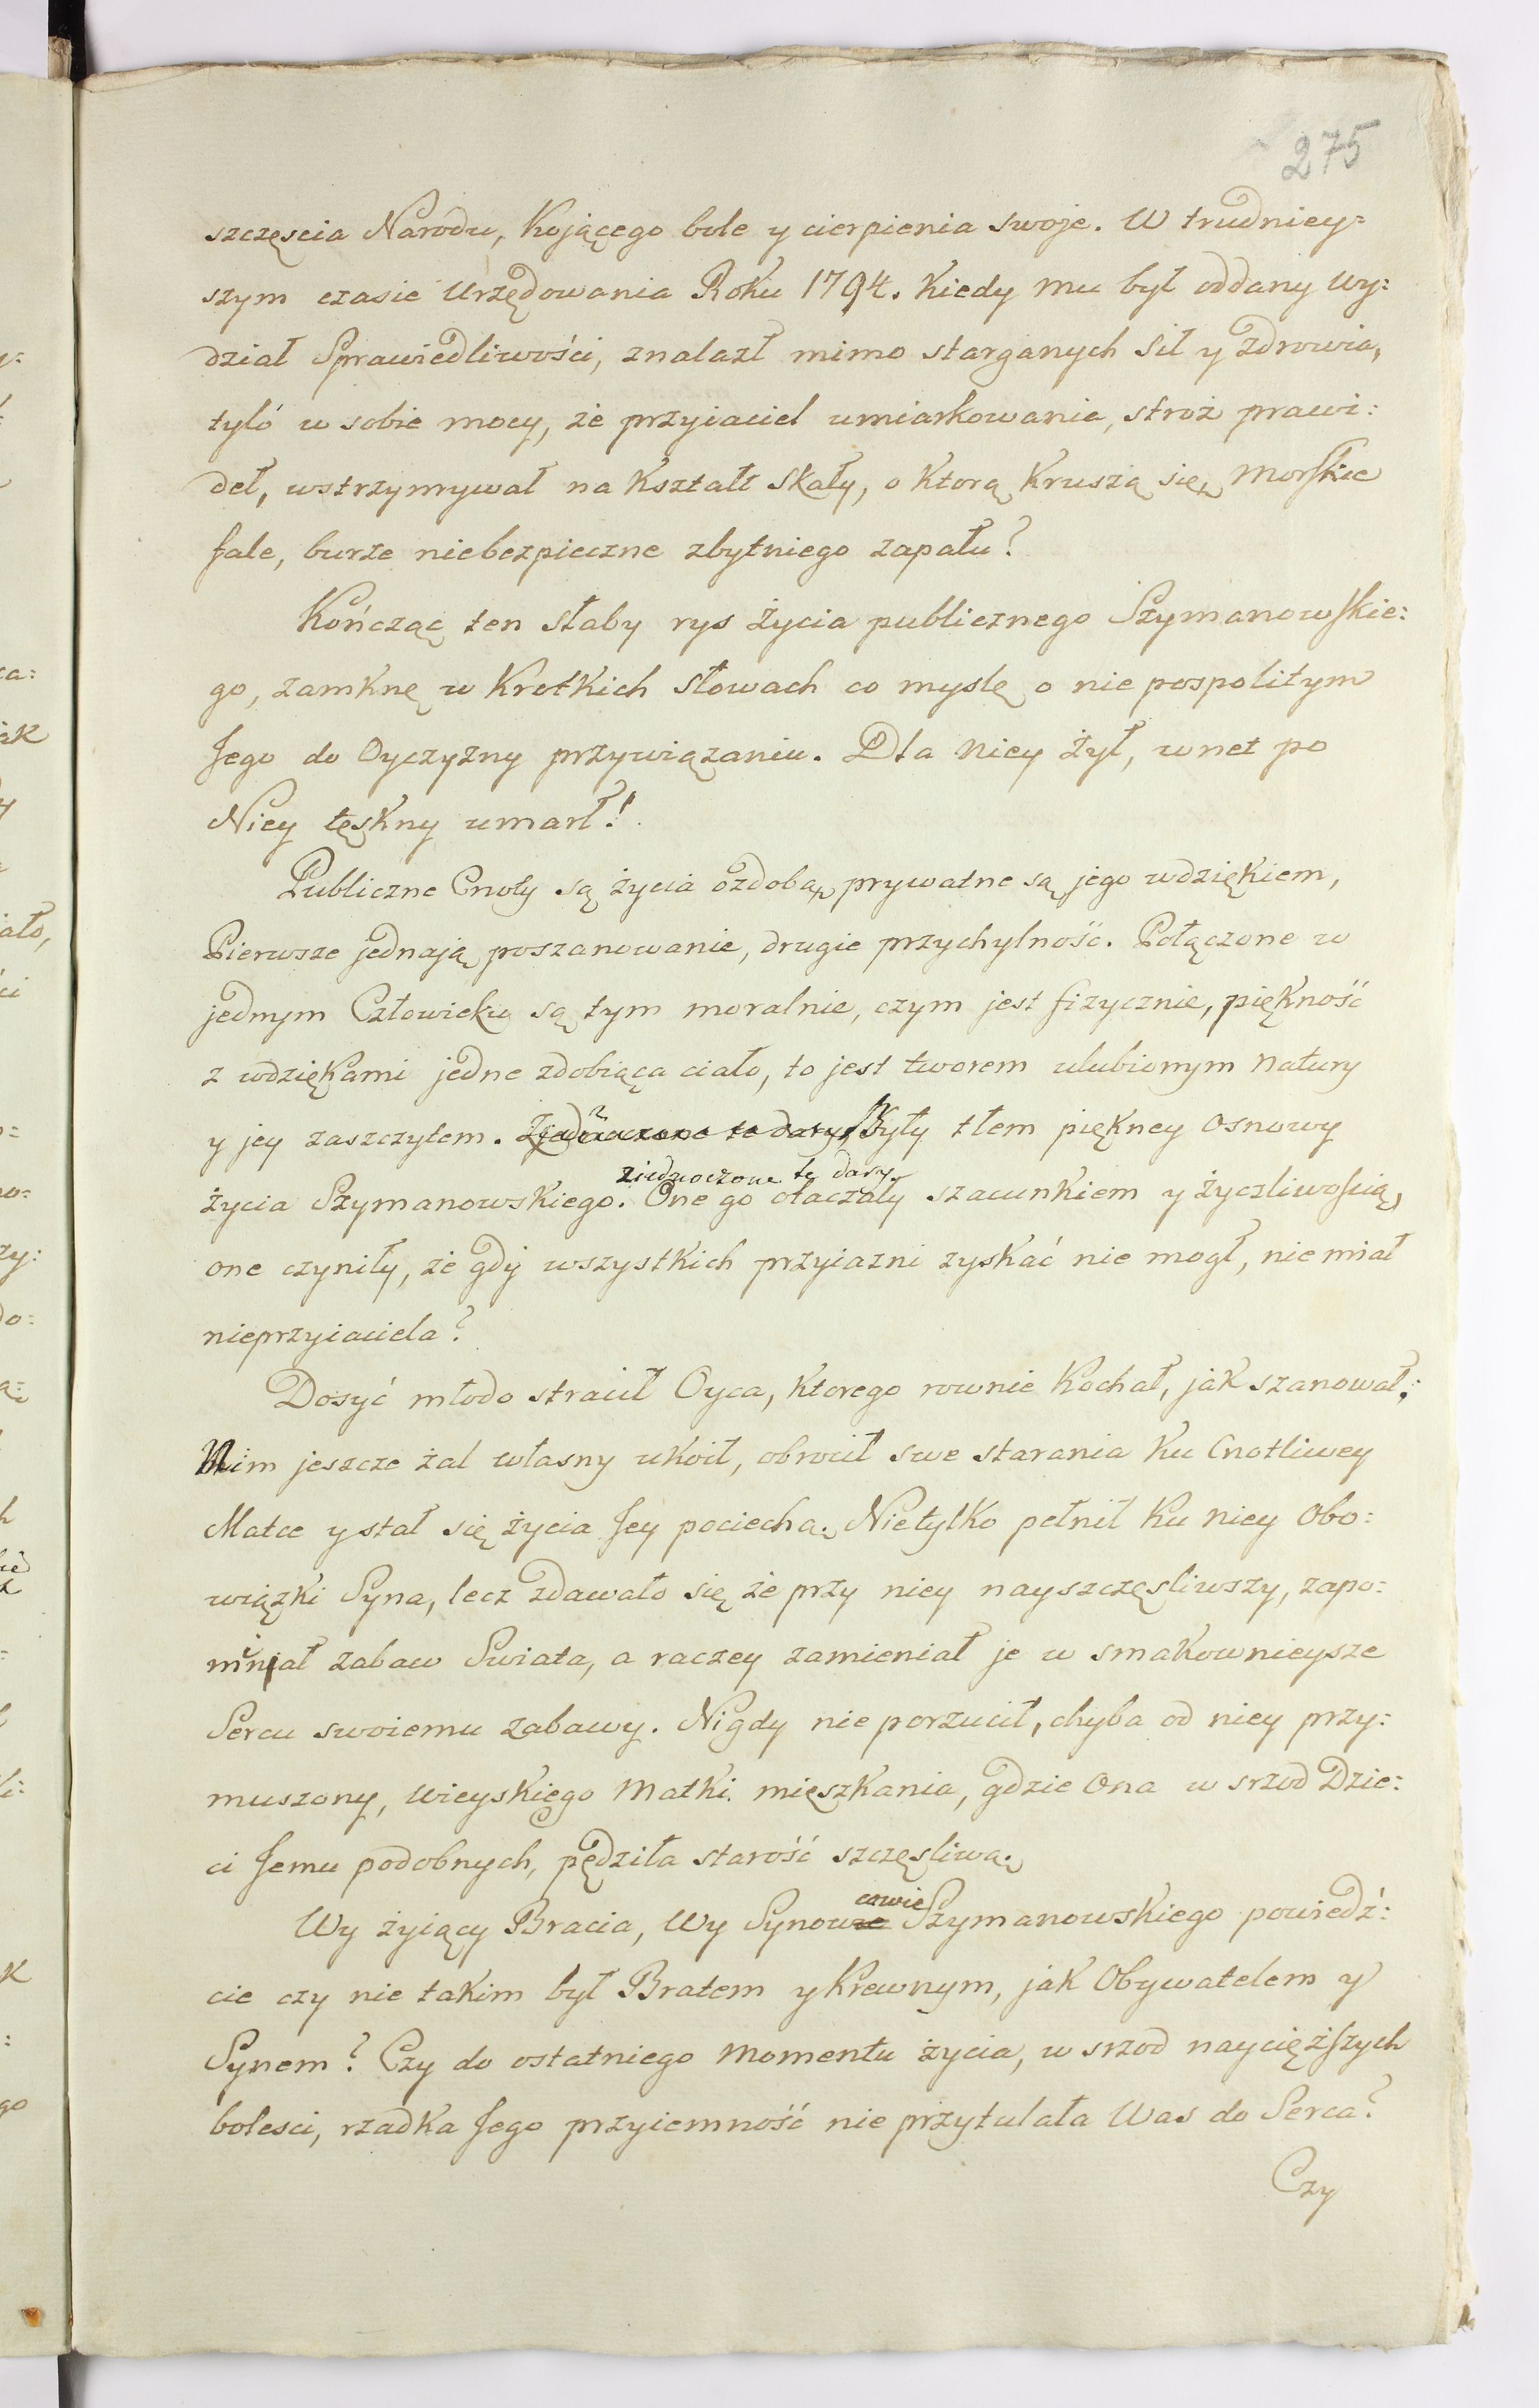 275
szczęscia Narodu, Kojącego bole y cierpienia swoje. W trudniey=
szym czasie Urzędowania Roku 1794. Kiedy mu był oddany Wy=
dział Sprawiedliwości, znalazł mimo starganych sił y zdrowia,
tylo w sobie mocy, że przyiaciel umiarkowania, stroż prawi=
deł, wstrzymywał na Kształt Skały, o Ktorą Kruszą się, Morskie
fale, burze niebezpieczne zbytniego zapału?
Kończąc ten słaby rys życia publicznego Szymanowskie=
go, zamknę w Krotkich słowach co myslę o nie pospolitym
Jego do Oyczyzny przywiązaniu. Dla Niey żył, wnet po
Niey tęskny umarł!
Publiczne Cnoty są życia ozdobą, prywatne są jego wdziękiem,
Pierwsze jednają poszanowanie, drugie przychylność. Połączone w
jednym Człowieku są tym moralnie, czym jest fizycznie, piękność
z wdziękami jedne zdobiąca ciało, to jest tworem ulubionym Natury
y jey zaszczytem. Zjednoczone te dary Były tłem piękney Osnowy
ziednoczone te dary.
życia Szymanowskiego. One go otaczały szacunkiem y życzliwością,
one czyniły, że gdy wszystkich przyiazni zyskać nie mogł, nie miał
nieprzyiaciela?
Dosyć młodo stracił Oyca, Ktorego rownie Kochał, jak szanował;
Nim jeszcze żal własny ukoił, obrocił swe starania Ku Cnotliwey
Matce y stał się życia Jey pociechą. Nietylko pełnił Ku niey Obo=
wiązki Syna, lecz zdawało się że przy niey nayszczęsliwszy, zapo=
minał zabaw Swiata, a raczey zamieniał je w smakownieysze
Sercu swoiemu zabawy. Nigdy nie porzucił, chyba od niey przy=
muszony, Wieyskiego Matki mięszkania, gdzie Ona w srzod Dzie=
ci Jemu podobnych, pędziła starość szczęsliwą.
cowie
Wy żyiący Bracia, Wy Synowce Szymanowskiego powiedź=
cie czy nie takim był Bratem y Krewnym, jak Obywatelem y
Synem? Czy do ostatniego Momentu życia, w srzod naycięższych
bolesci, rzadka Jego przyiemność nie przytulała Was do Serca?
Czy